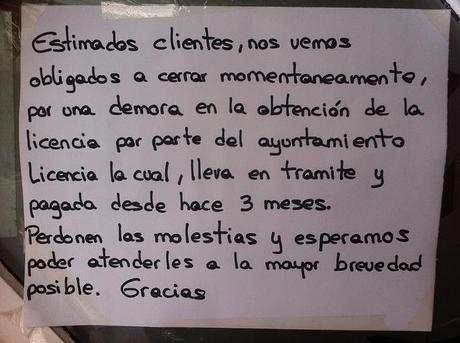 Estimados clientes, nos vemos
obligados a cerrar momentaneamente,
por una demora en la obtención de la
licencia por parte del ayuntamiento
Licencia la cual, lleva en tramite y
pagada desde hace 3 meses.
Perdonen las molestias y esperamos
poder atenderles a la mayor brevedad
posible. Gracias